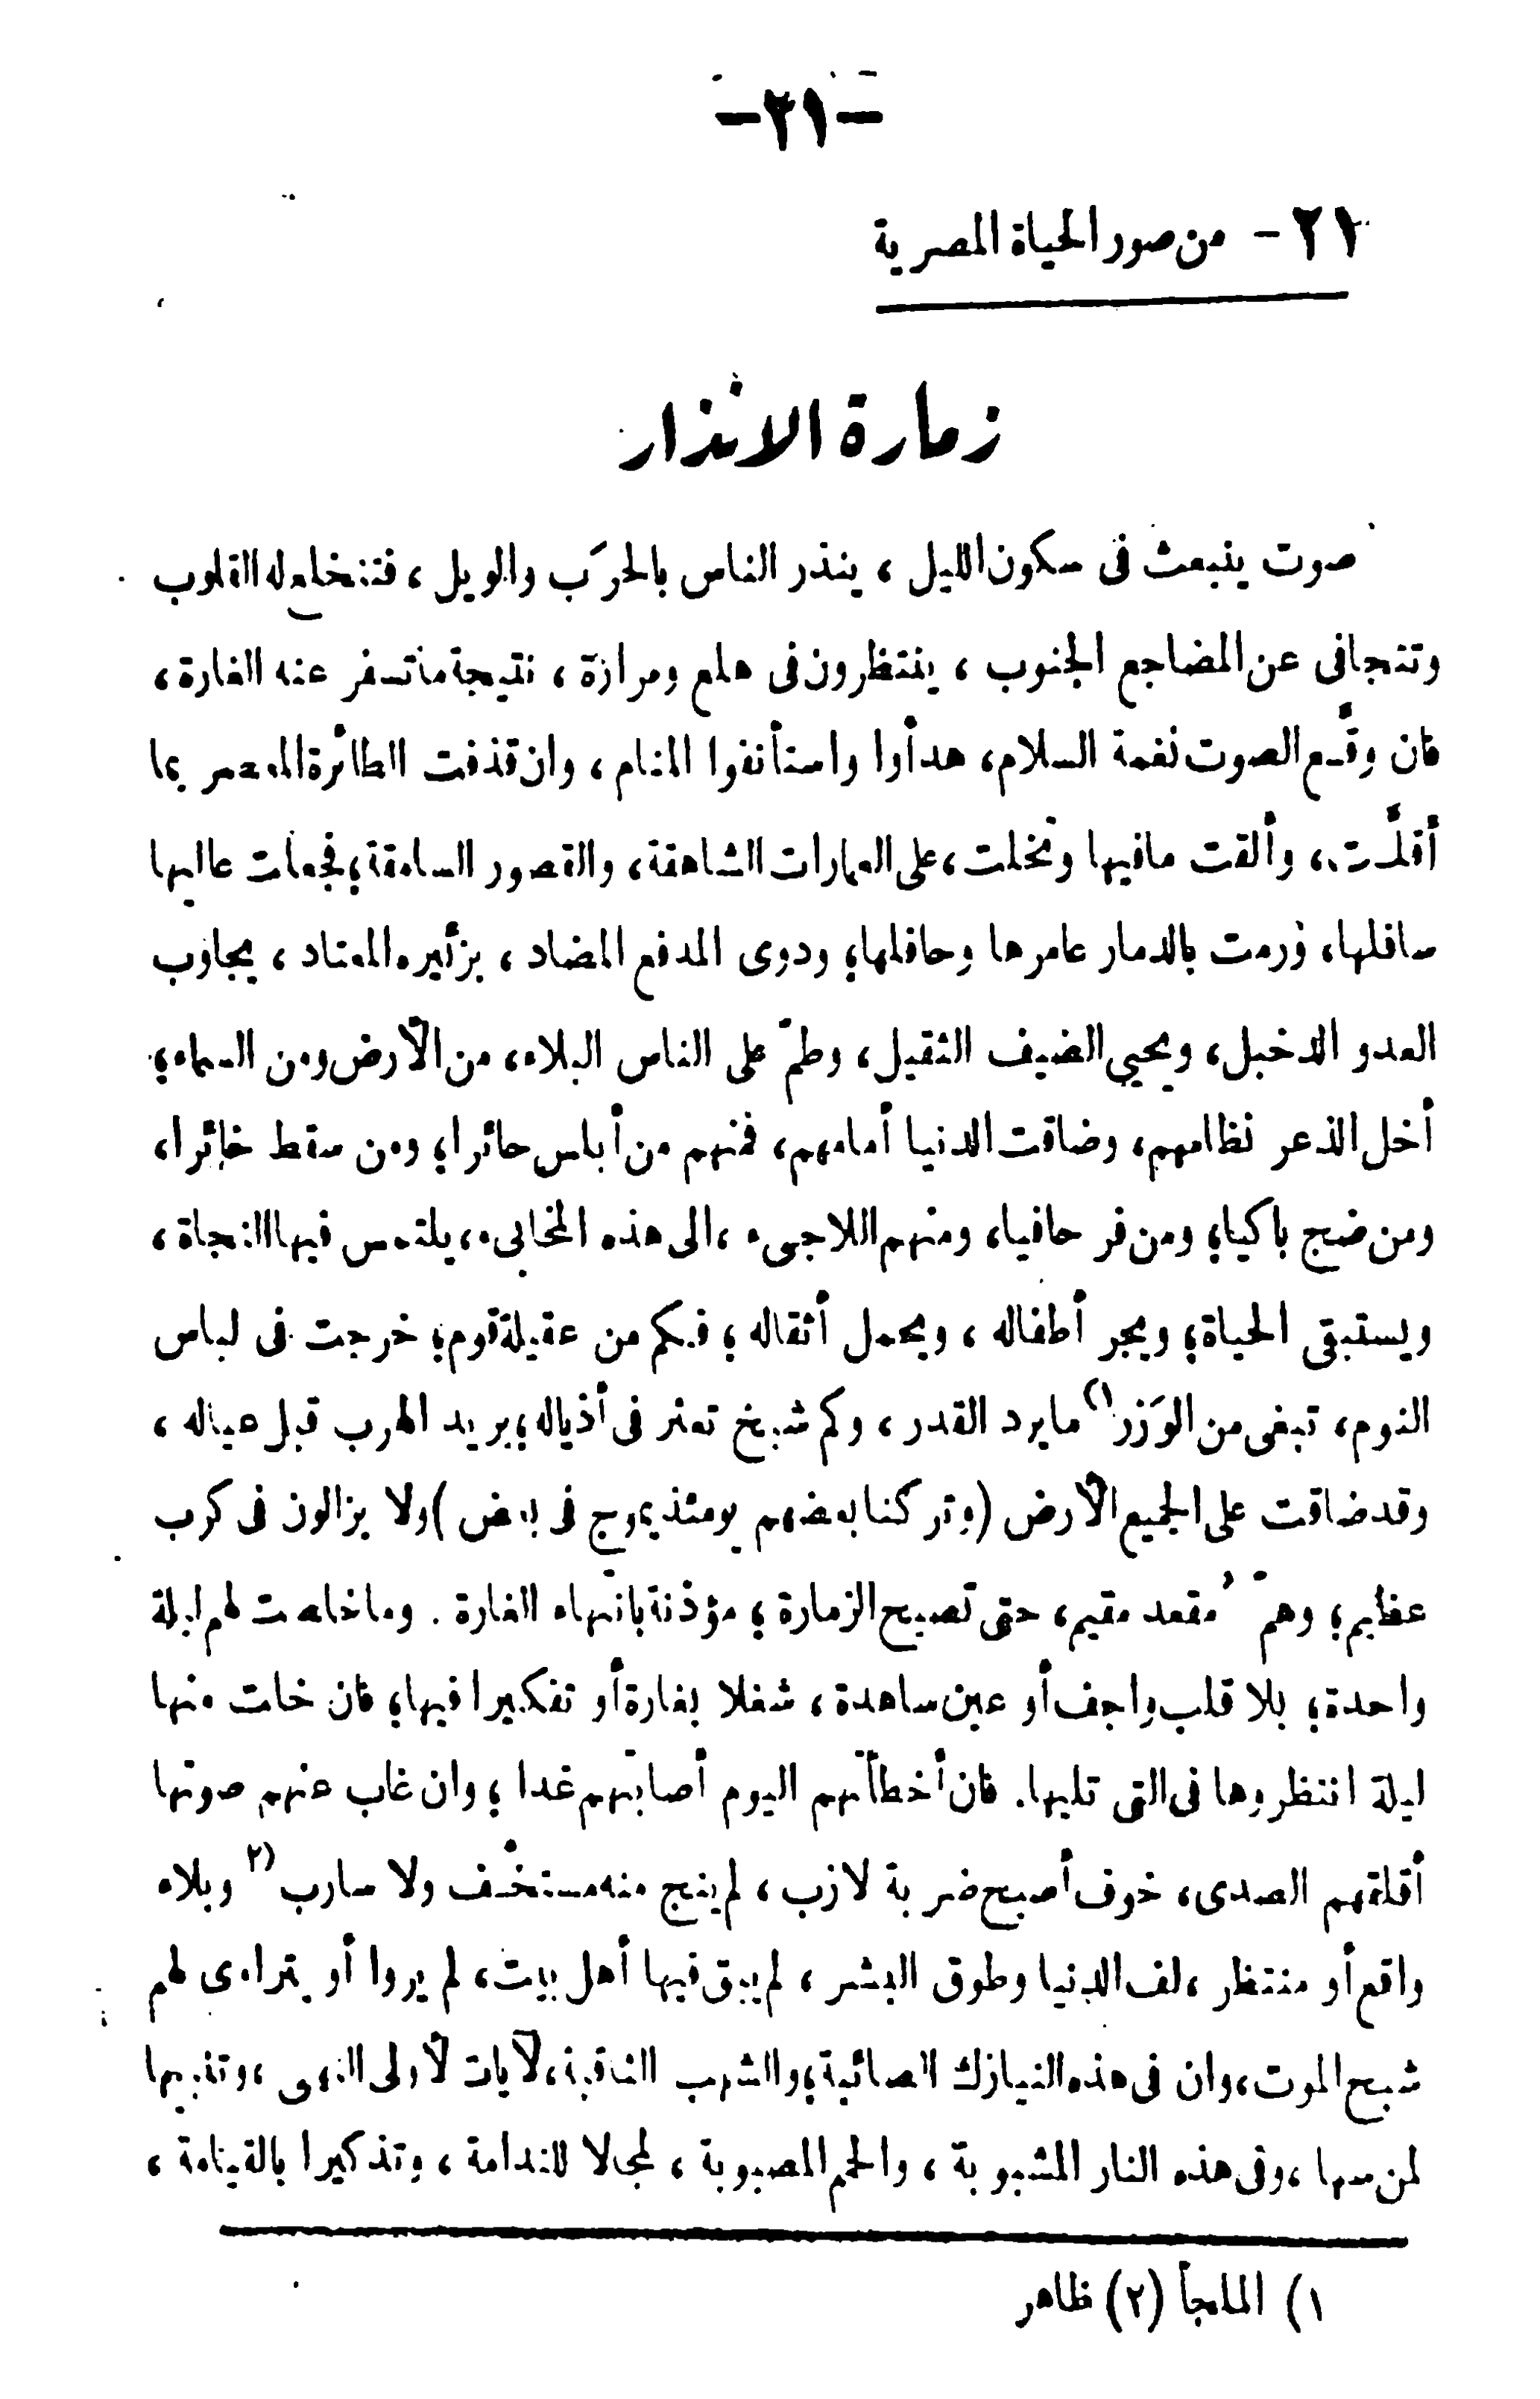 -٢١-
٢١- من صور الحياة المصرية
زمارة الانذار
صوت ينبعث فى سكون الليل ، ينذر الناس بالحرَب والويل ، فتنخلع له القلوب
وتتجافى عن المضاجع الجنوب ، ينتظرون فى هلع ومرارة ، نتيجة ما تسفر عنه الغارة ،
فان وقَّع الصوت نغمة السلام، هدأوا واستأنفوا المنام ، وان قذفت الطائرة المعصر بما
أقلَّت ، وألقت مافيها وتخلت ، على العمارات الشاهقة ، والقصور السامقة ؛ فجعلت عاليها
سافلها، ورمت بالدمار عامرها وحافلها؛ ودوى المدفع المضاد ، بزئيره المعتاد ، يجاوب
العدو الدخيل، ويحيي الضيف الثقيل، وطمّ على الناس البلاء، من الأرض ومن السماء؛
أخل الذعر نظامهم، وضاقت الدنيا أمامهم، فمنهم من أبلس حائرا؛ ومن سقط خائرا،
ومن ضج باكيا؛ ومن فر حافيا، ومنهم اللاجىء ، الى هذه المخابىء، يلتمس فيها النجاة ،
ويستبقى الحياة؛ ويجر أطفاله ، ويحمل أثقاله ؛ فكم من عقيلة قوم؛ خرجت فى لباس
النوم، تبغى من الوَزر (١ مايرد القدر ، وكم شيخ تعثر فى أذياله ؛ يريد الهرب قبل عياله ،
وقد ضاقت على الجميع الأرض (وتركنا بعضهم يومئذ يموج فى بعض) ولا يزالون فى كرب
عظيم؛ وهمّ مُقعد مقيم، حتى تصيح الزمارة ؛ مؤذنة بانتهاء الغارة . وما خلصت لهم ليلة
واحدة؛ بلا قلب واجف أو عين ساهدة ، شغلا بغارة أو تفكيرا فيها؛ فان خلت منها
ليلة انتظروها فى التى تليها. فان أخطأتهم اليوم أصابتهم غدا ؛ وان غاب عنهم صوتها
أقلقهم الصدى، خوف أصبح ضربة لازب ، لم ينج منه مستخف ولا سارب (٢ وبلاء
واقع أو منتظر ، لف الدنيا وطوق البشر ، لم يبق فيها أهل بيت، لم يروا أو يتراءى لهم
شبح الموت، وان فى هذه النيازك الصائبة؛ والشهب الثاقبة، لآيات لأولى النهى ، وتنبيها
لمن سها ، وفى هذه النار المشبوبة ، والحمم المصبوبة ، لمجالا للندامة ، وتذكيرا بالقيامة ،
١) الملجأ (٢) ظاهر